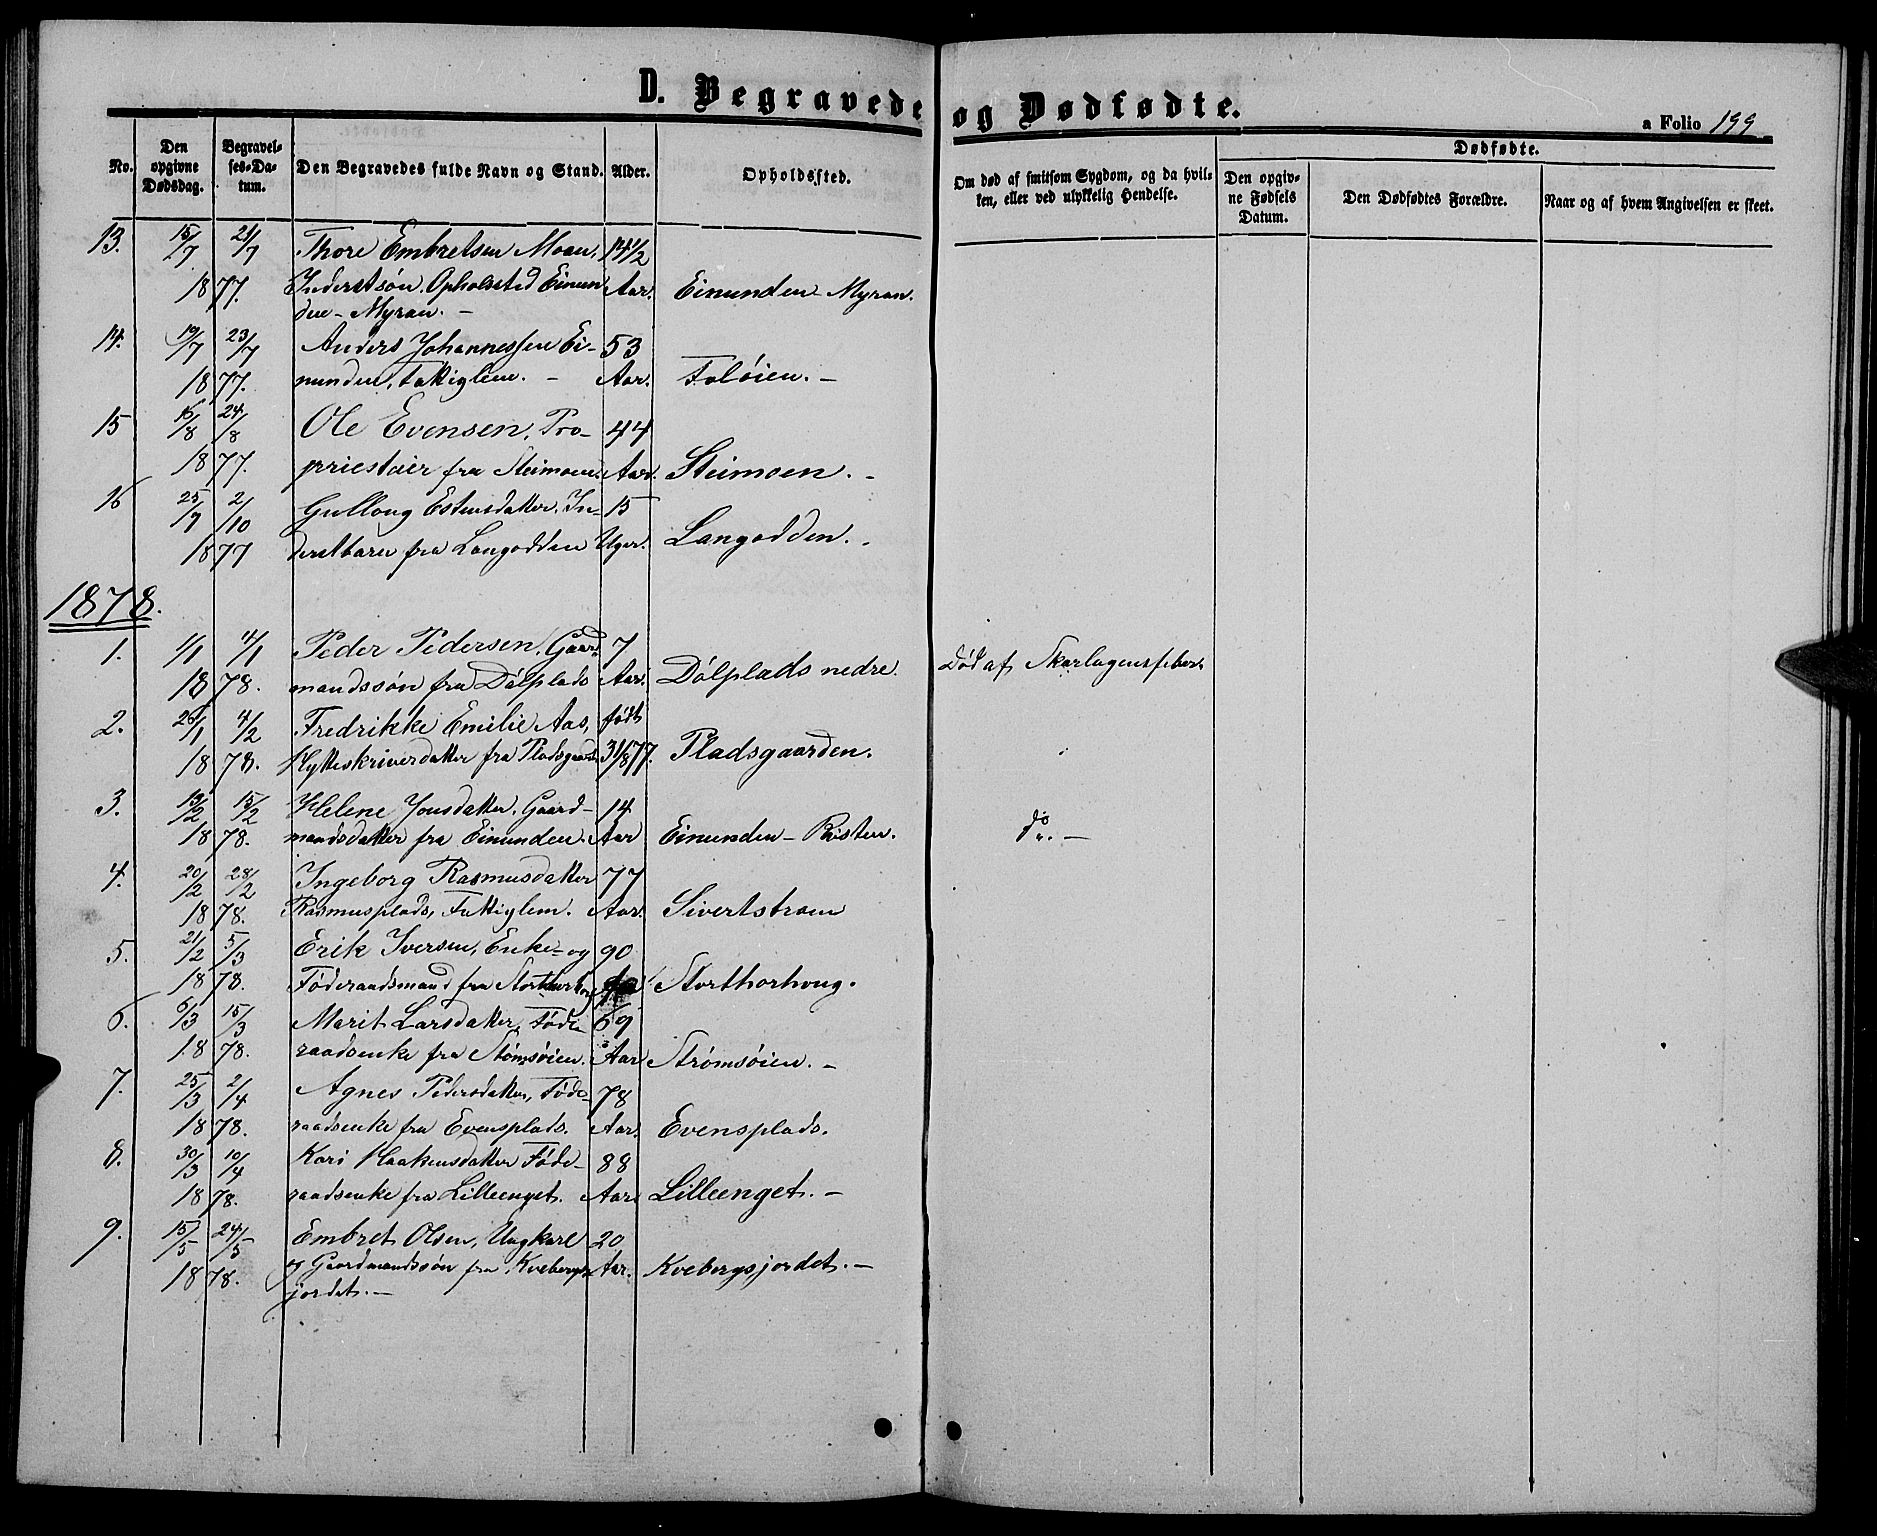 D. Begravede og Dødfødte.
a Folio 199
No.
Den opgivne Dødsdag.
Begravelses-Datum.
Den Begravedes fulde Navn og Stand.
Alder.
Opholdssted.
Om død af smitsom Sygdom, og da hvilken, eller ved ulykkelig Hendelse.
Dødfødte.
Den opgivne Fødsels Datum.
Den Dødfødtes Forældre.
Naar og af hvem Angivelsen er skeet.
13. 15/7 21/7 Thore Embretsen Moan, 14 1/2
18 77. Inderstsøn, Opholdssted Einun Aar. Einunden-Myran.
den-Myran. -
14. 19/7 23/7 Anders Johannessen Ei- 53
18 77. nunden, Fattiglem. - Aar. Foløien. -
15 16/8 24/8 Ole Evensen, Pro- 44
18 77. priestair fra Steimoen. Aar. Steimoen. -
16 25/9 2/10 Gullaug Estensdatter, In- 15
18 77 derstbarn fra Langodden Uger. Langodden. -
1878.
1. 1/1 4/1 Peder Pedersen, Gaard- 7
18 78. mandssøn fra Dølplads Aar. Dølplads nedre. Død af Skarlagensfeber
2. 26/1 4/2 Fredrikke Emilie Aas, født
18 78. Hytteskriverdatter fra Pladsgaard. 31/8 77. Pladsgaarden.
3. 13/2 15/2 Helene Jonsdatter, Gaard- 14
18 78. mandsdatter fra Einunden. Aar Einunden-Bristen. do. -
4. 20/2 28/2 Ingeborg Rasmusdatter 77
18 78. Rasmusplads, Fattiglem. Aar. Sivertstrøen
5. 21/2 5/3 Erik Iversen, Enke- og 90
18 78. Føderaadsmand fra Storthorhoug Storthorhoug.
6. 6/3 15/3 Marit Larsdatter, Føde- 69
18 78. raadsenke fra Stømsøien. Aar Strømsøien. -
7. 25/3 2/4 Agnes Pedersdatter, Føde- 78
18 78. raadsenke fra Evensplads. Aar. Evensplads.
8. 30/3 10/4 Kari Haakensdatter Føde- 88
18 78. raadsenke fra Lilleenget. Aar. Lilleenget. -
9. 15/5 24/5 Embret Olsen, Ungkarl 20
18 78. og Gaardmandssøn fra Kvebergs- Aar. Kvebergsjordet. -
jordet. -